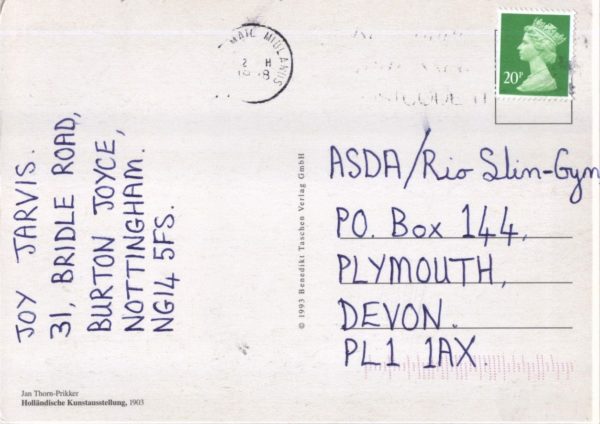 JOY JARVIS.
31, BRIDLE ROAD,
BURTON JOYCE,
NOTTINGHAM.
NG14 5FS.
Jan Thorn-Prikker
Holländische Kunstausstellung, 1903
© 1993 Benedikt Taschen Verlag GmbH
MAIL MIDLANDS
20P
ASDA/Rio Slin-Gym
P.O. Box 144,
PLYMOUTH,
DEVON.
PL1 1AX.